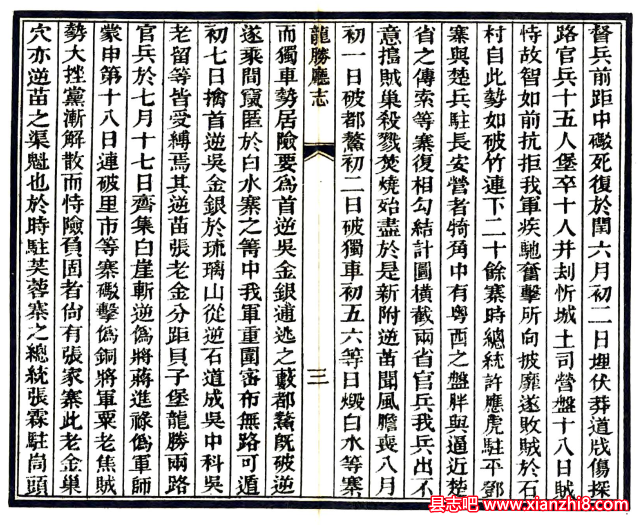 督兵前距中礟死復於閏六月初二日埋伏莽道戕傷探
路官兵十五人堡卒十人并刦忻城土司營盤十八日賊
恃故智如前抗拒我軍疾馳奮擊所向披靡遂敗賊於石
村自此勢如破竹連下二十餘寨時總統許應虎駐平鄧
寨與楚兵駐長安營者犄角中有粵西之盤胖與逼近楚
省之傳索等寨復相勾結計圖橫截兩省官兵我兵出不
意搗賊巢殺戮焚燒始盡於是新附逆苗聞風膽喪八月
初一日破都鰲初二日破獨車初五六等日燬白水等寨
龍勝廳志
三
而獨車勢居險要爲首逆吳金銀逋逃之藪都鰲旣破逆
遂乘間竄匿於白水寨之箐中我軍重圍密布無路可遁
初七日擒首逆吳金銀於琉璃山從逆石道成吳中科吳
老留等皆受縛焉其逆苗張老金分距貝子堡龍勝兩路
官兵於七月十七日齊集白崖斬逆僞將蔣進祿僞軍師
蒙申第十八日連破里市等寨礟擊僞銅將軍粟老焦賊
勢大挫黨漸解散而恃險負固者尙有張家寨此老金巢
穴亦逆苗之渠魁也於時駐芙蓉寨之總統張霖駐茼頭
县志吧 www.xianzhi8.com